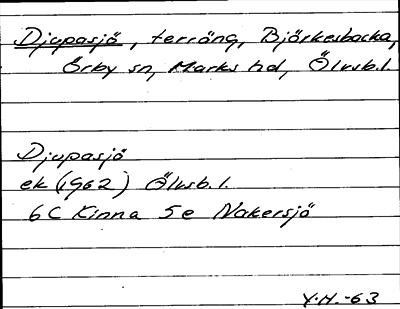 Djupasjö, terräng, Björkesbacka,
Örby sn, Marks hd, Älvsb.l.
Djupasjö
ek (1962) Älvsb. l.
6C Kinna 5e Nakersjö
Y.H.-63